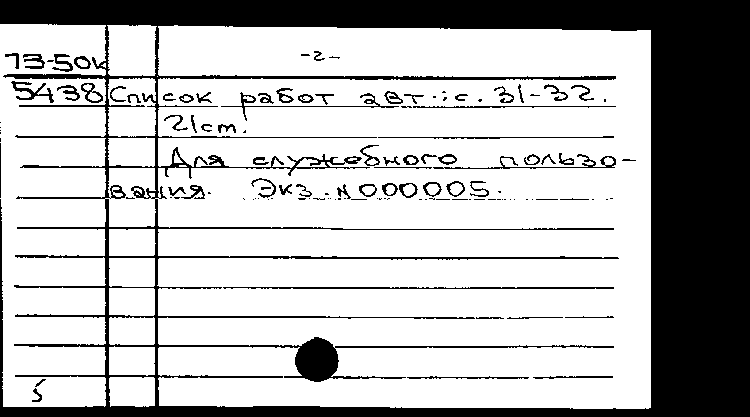 -2-
73-50к
5438 Список работ авт.: с. 31-32.
21cm.
Для служебного пользо-
вания. Экз. N000005.
5